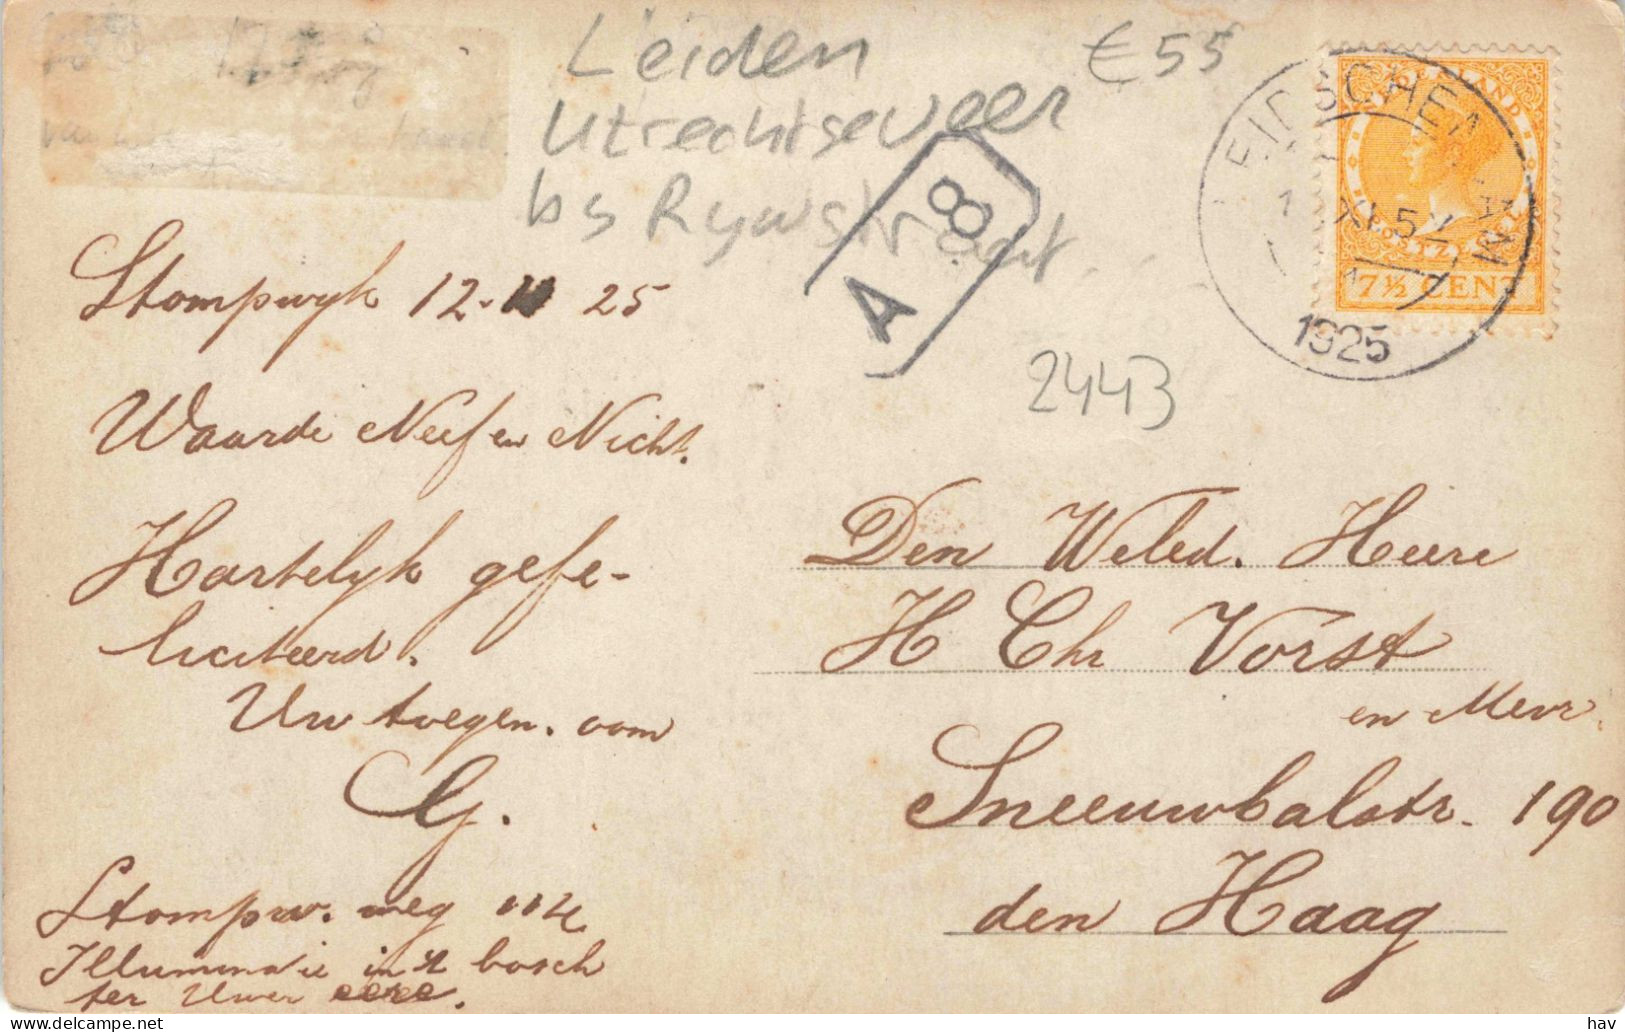 Leiden
€55
Utrechtseveer
bij Rijnstraat
A 8
LEIDSCHENDAM
1925
NEDERLAND
POSTZEGEL
7½ CENT
2443
Stompwyk 12-11 25
Waarde Neef en Nicht.
Hartelyk gefe-
liciteerd.
Uw toegen. oom
G.
Stompw. weg 112
Illuminatie in 't bosch
ter Uwer eere.
Den Weled. Heere
H Chr Vorst
en Mevr.
Sneeuwbalstr. 190
den Haag
hav